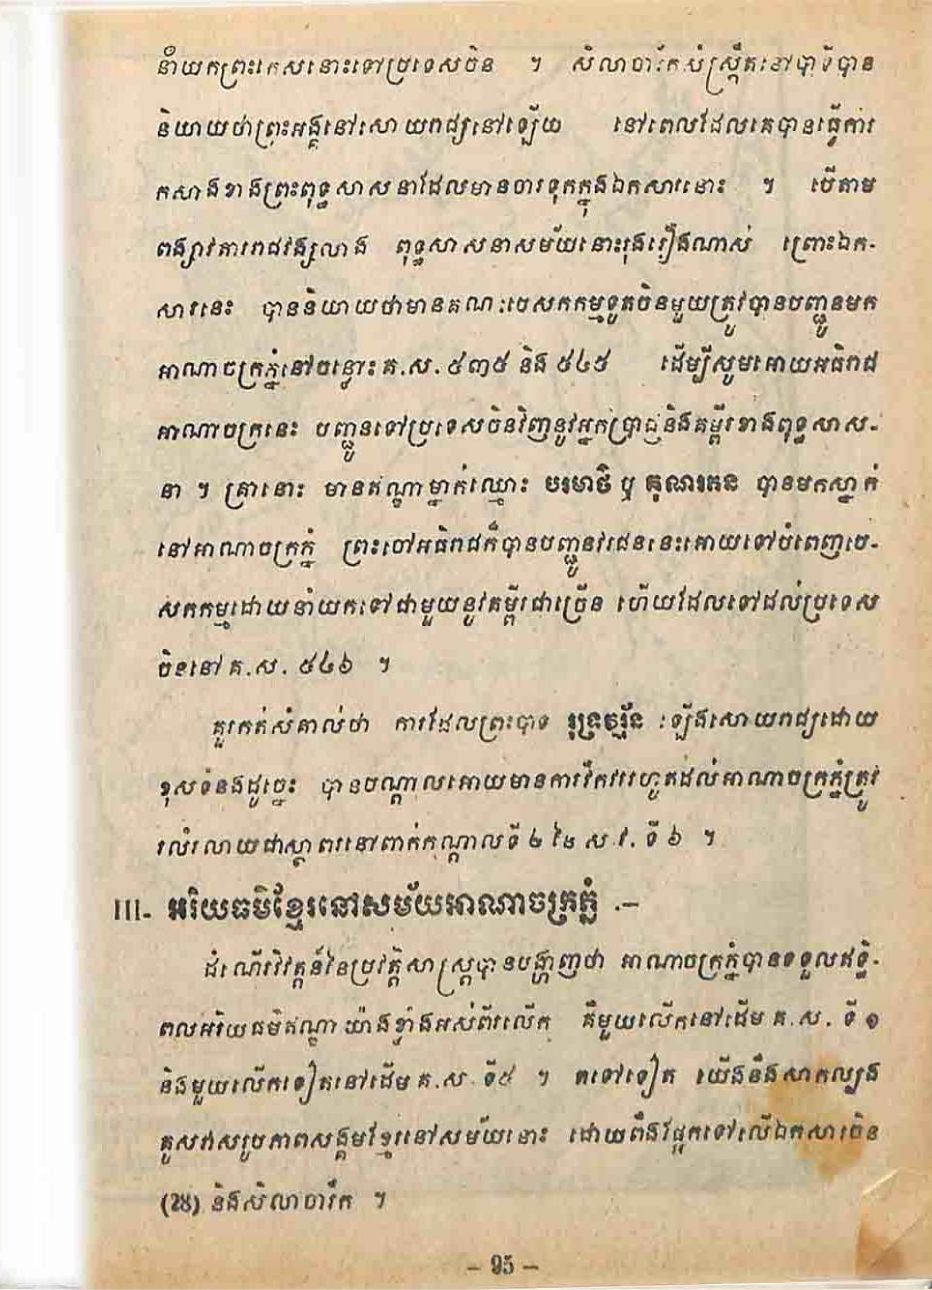 នាំយកព្រះកេសនោះទៅប្រទេសចិន ។ សិលាចារឹកសំស្ក្រឹតនៅបាទីបាន
និយាយថាព្រះអង្គនៅសោយរាជ្យនៅឡើយ នៅពេលដែលគេបានធ្វើការ
កសាងខាងព្រះពុទ្ធសាសនាដែលមានចារទុកក្នុងឯកសារនោះ ។ បើតាម
ពង្សាវតាររាជវង្សលាង ពុទ្ធសាសនាសម័យនោះរុងរឿងណាស់ ព្រោះឯក-
សារនេះ បាននិយាយថាមានគណៈបេសកកម្មទូតចិនមួយត្រូវបានបញ្ជូនមក
អាណាចក្រភ្នំនៅចន្លោះគ.ស. ៥៣៥ និង ៥៤៥ ដើម្បីសូមអោយអធិរាជ
អាណាចក្រនេះ បញ្ជូនទៅប្រទេសចិនវិញនូវអ្នកប្រាជ្ញនិងគម្ពីរខាងពុទ្ធសាស-
នា ។ គ្រានោះ មានឥណ្ឌាម្នាក់ឈ្មោះ បរមាថិ ឬ គុណរតន បានមកស្នាក់
នៅអាណាចក្រភ្នំ ព្រះចៅអធិរាជក៏បានបញ្ជូនវរជននេះអោយទៅបំពេញបេ-
សកកម្មដោយនាំយកទៅជាមួយនូវគម្ពីរជាច្រើន ហើយដែលទៅដល់ប្រទេស
ចិននៅ គ.ស. ៥៤៦ ។
គួរកត់សំគាល់ថា ការដែលព្រះបាទ រុទ្រវរ្ម័ន ឡើងសោយរាជ្យដោយ
ខុសទំនងដូច្នេះ បានបណ្តាលអោយមានការវឹកវររហូតដល់អាណាចក្រភ្នំត្រូវ
រលំរលាយជាស្ថាពរនៅពាក់កណ្តាលទី ២ នៃ ស.វ. ទី ៦ ។
III- អរិយធម៌ខ្មែរនៅសម័យអាណាចក្រភ្នំ .–
ដំណើរវិវត្តន៍នៃប្រវត្តិសាស្ត្របានបង្ហាញថា អាណាចក្រភ្នំបានទទួលឥទ្ធិ-
ពលអរិយធម៌ឥណ្ឌា យ៉ាងខ្លាំងអស់ពីរលើក គឺមួយលើកនៅដើម គ.ស. ទី ១
និងមួយលើកទៀតនៅដើម គ.ស. ទី៥ ។ តទៅទៀត យើងនឹងសាកល្បង
គូសវាសរូបភាពសង្គមខ្មែរនៅសម័យនោះ ដោយពឹងផ្អែកទៅលើឯកសារចិន
(28) និងសិលាចារឹក ។
– 95 –